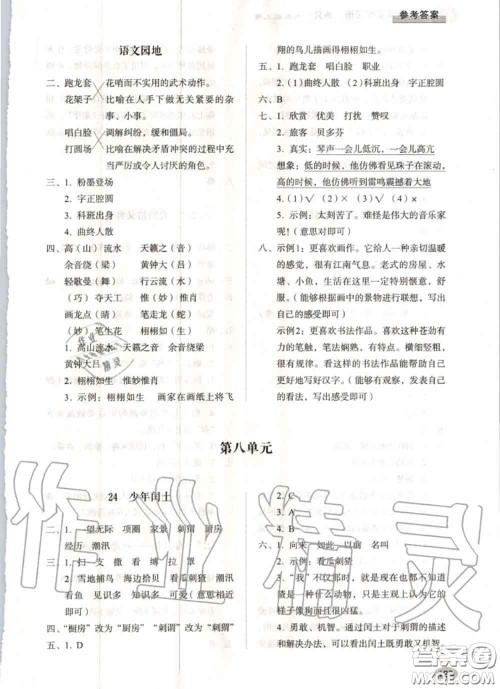 参考答案
语文园地
二、跑龙套 花哨而不实用的武术动作。
花架子 比喻在人手下做无关紧要的杂事、小事。
唱白脸 调解纠纷，缓和僵局。
打圆场 比喻在解决矛盾冲突的过程中充当严厉或令人讨厌的角色。
三、1. 粉墨登场
2. 字正腔圆
3. 科班出身
4. 曲终人散
四、高（山）流水 天籁之（音）
余音绕（梁） 黄钟大（吕）
轻歌曼（舞） 行云流（水）
（巧）夺天工 惟（妙）惟肖
画龙点（睛） （妙）笔生花
（妙）笔生花 栩栩如（生）
五、1. 高山流水 天籁之音 余音绕梁
黄钟大吕
2. 栩栩如生 惟妙惟肖
3. 示例：栩栩如生 画家在画纸上将飞
翔的鸟儿描画得栩栩如生。
五、1. 跑龙套 唱白脸 职业
2. (1)曲终人散 (2)科班出身 字正腔圆
六、B
七、1. 欣赏 优美 打扰 赞叹
2. 旅客 贝多芬
3. 真实：琴声一会儿低沉，一会儿高亢
想象：低的时候，他仿佛看见珠子在滚动，
高的时候，他仿佛听到雷鸣震撼着大地
4. (1)√ (2)× (3)√ (4)√
5. 示例：太刻苦了。难怪是伟大的音乐家呢！（意思对即可）
八、示例1：更喜欢画作。它给人一种亲切温暖
的感觉，很有江南气息。老式的房屋、水
塘、小鱼，生机勃勃，充满了浓浓的生活
气息。（能够根据画中的景物进行联想，写
出自己的感受即可）
示例2：更喜欢书法作品。喜欢这种苍劲有
力的笔势，笔法娴熟，有特点。横细竖粗，
很有规律。看这样的书法作品能帮助自己
开阔眼界。（能够有观察，发表对书法的看
法，写出感受即可）
第八单元
24 少年闰土
一、1. 一望无际 项圈 家景 刺猬 厨房
经历 潮汛
三、1. 扫 支 撒 看 缚 罩
2. 雪地捕鸟 海边拾贝 看瓜刺猹 潮汛
看鱼 见识多 知识多 可爱（意思对即可）
四、“橱房”改为“厨房” “刺谓”改为“刺猬”
五、1. D
2. C
3. A
4. B
六、1. 向来 如此 前 名叫
2. 示例：看瓜刺猹
4. 勇敢，机智。通过闰土对于刺猬的描述
和解决办法，可以看出闰土既勇敢又机智。
作业精灵
答案